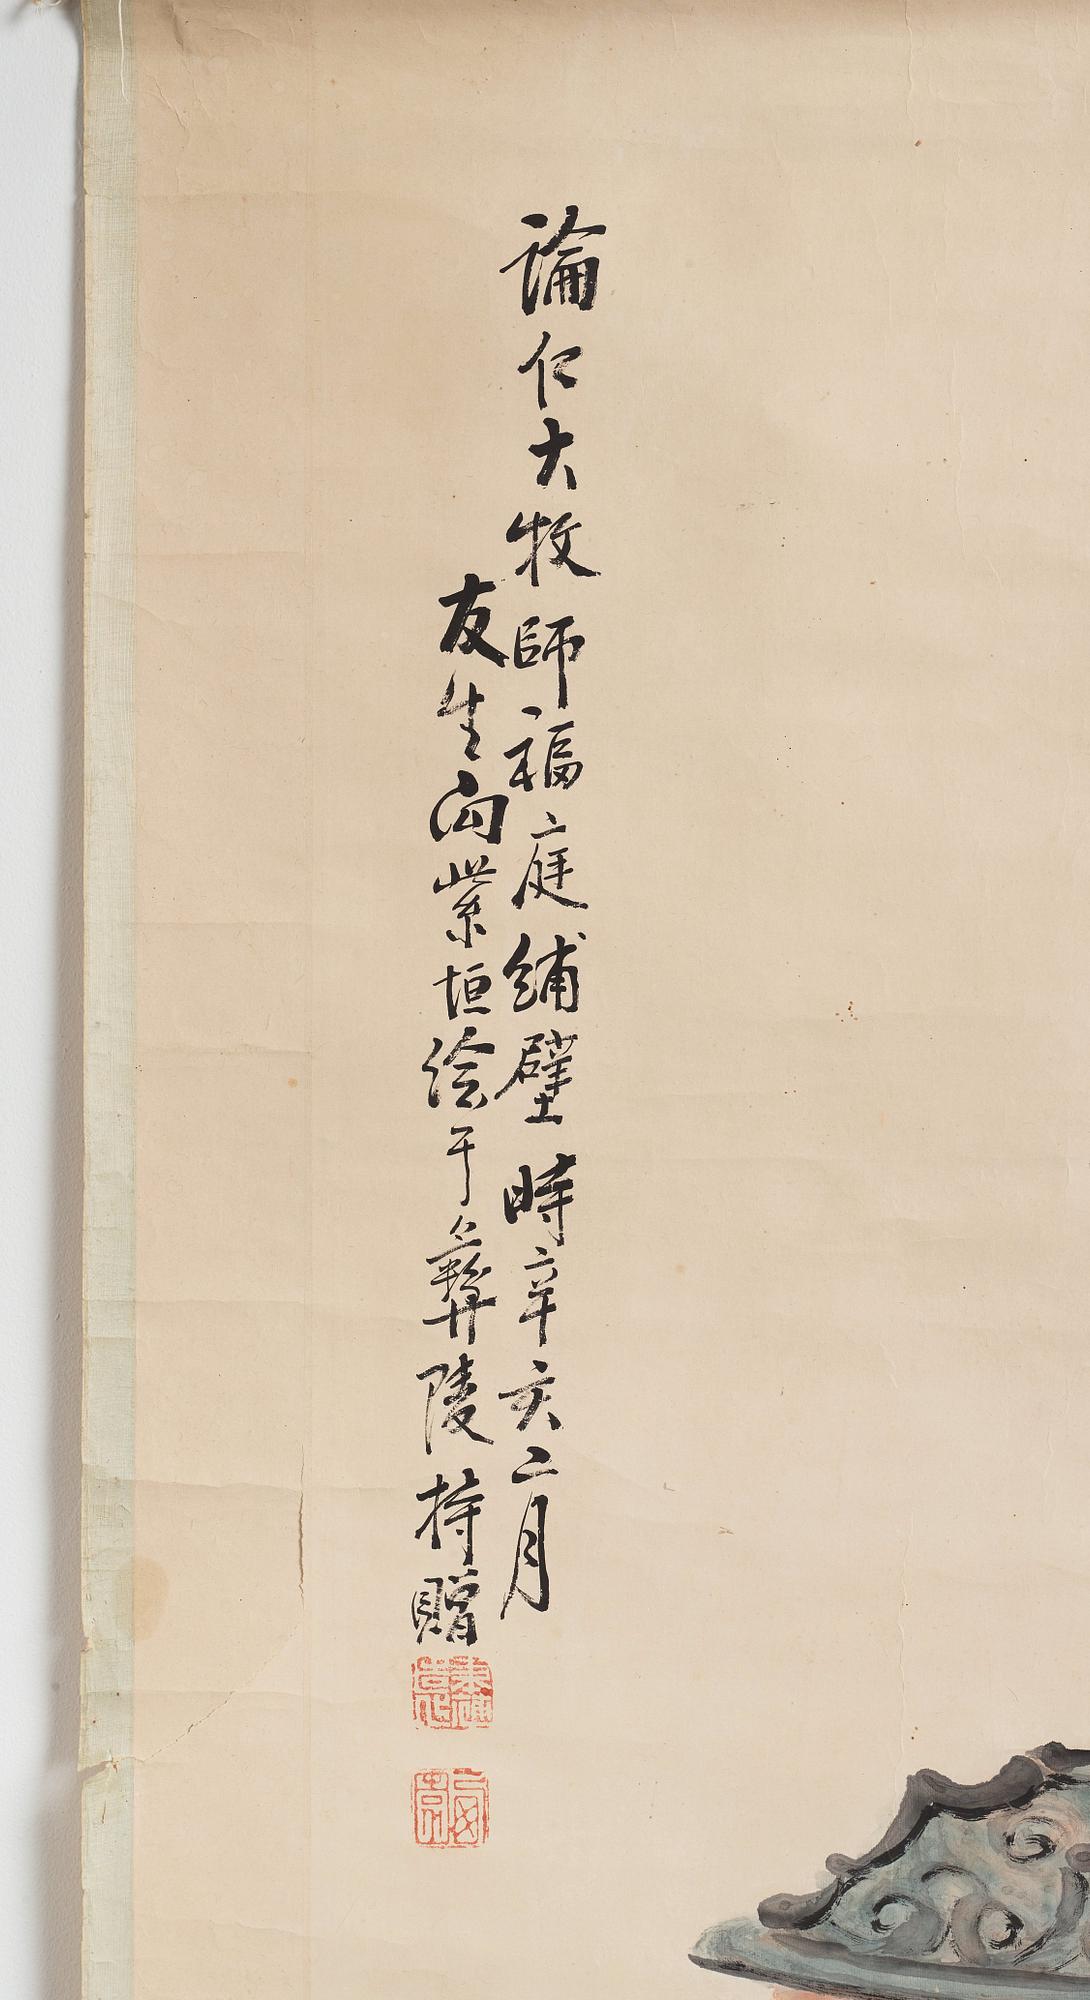 論仁大牧師福庭補壁 時辛亥二月
友生向紫垣绘于彝陵持贈